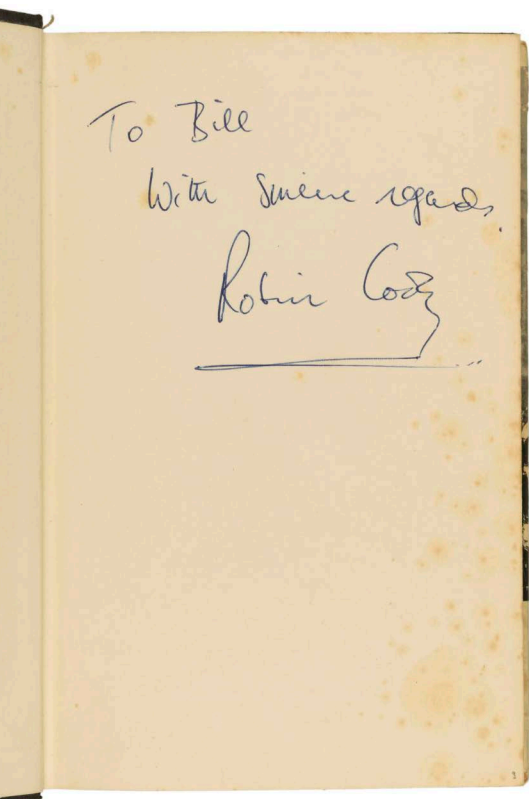 To Bill
With Sincere regards.
Robin Cook